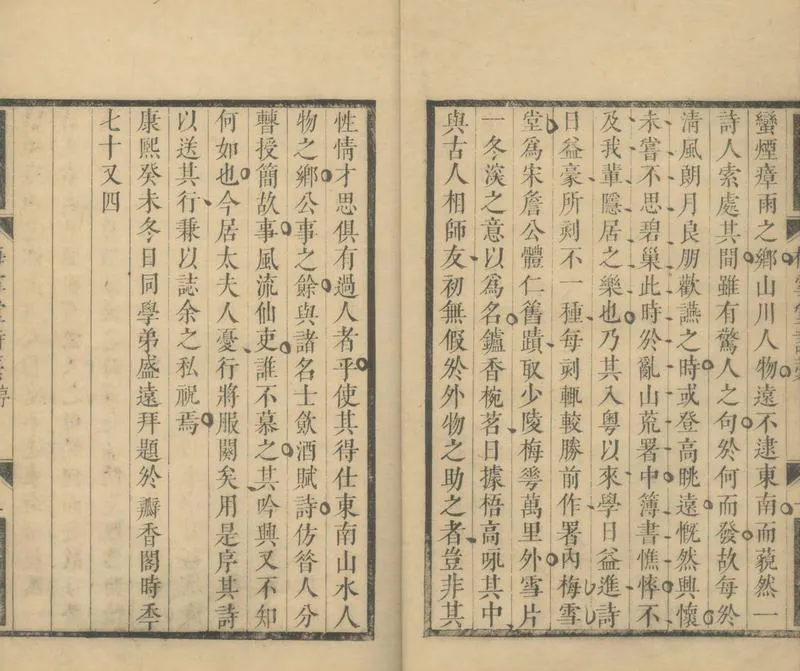 蠻煙瘴雨之鄉山川人物遠不逮東南而藐然一
詩人索處其間雖有驚人之句於何而發故每於
清風朗月良朋歡讌之時或登高眺遠慨然興懷
未嘗不思碧巢此時於亂山荒署中簿書憔悴不
及我輩隱居之樂也乃其入粤以來學日益進詩
日益豪所刻不一種每刻輒較勝前作署內梅雪
堂爲宋詹公體仁舊蹟取少陵梅蕚萬里外雪片
一冬深之意以爲名鑪香椀茗日據梧高吟其中
與古人相師友初無假於外物之助之者豈非其
性情才思俱有過人者乎使其得仕東南山水人
物之鄉公事之餘與諸名士飲酒賦詩仿昔人分
曹授簡故事風流仙吏誰不慕之其吟興又不知
何如也今居太夫人憂行將服闋矣用是序其詩
以送其行兼以誌余之私祝焉
康熙癸未冬日同學弟盛遠拜題於瓣香閣時年
七十又四